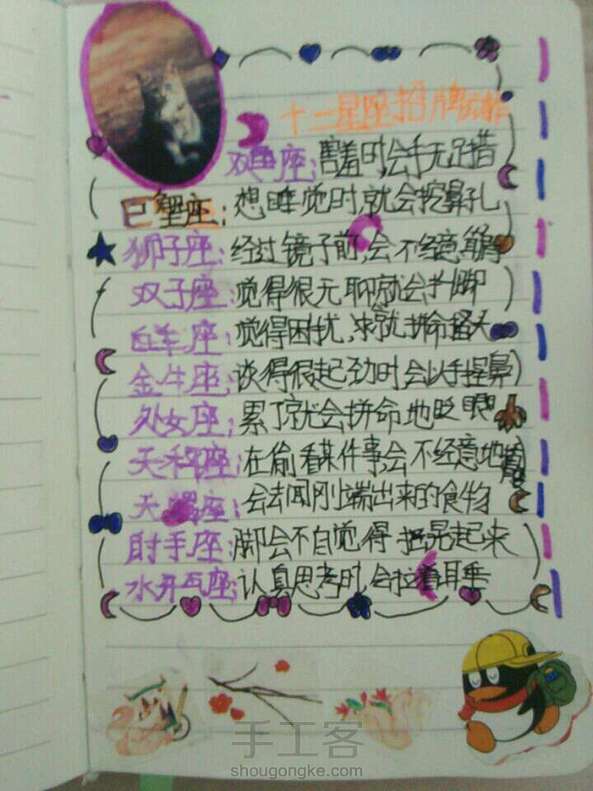 十二星座招牌动作
双鱼座:害羞时会手无足措
巨蟹座:想睡觉时,就会挖鼻孔
狮子座:经过镜子前,会不经意
双子座:觉得很无聊就会抖脚
白羊座:觉得困扰,就拼命搔头
金牛座:谈得很起劲时会以手捏鼻
处女座:累了就会拼命地眨眼
天秤座:在偷看某件事会不经意地
天蝎座:会去闻刚端出来的食物
射手座:脚会不自觉得摇晃起来
水并气座:认真思考时,会拉着耳垂
手工客
shougongke.com